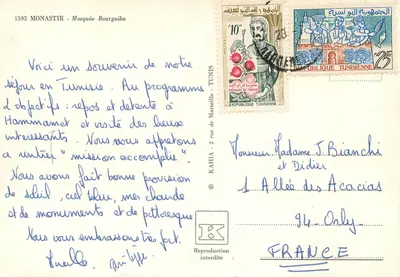 1595 MONASTIR - Mosquée Bourguiba
Voici un souvenir de notre
séjour en Tunisie. Au programme
2 objectifs : repos et détente à
Hammamet et visite des lieux
interessants. Nous nous apprêtons
a rentrer "mission accomplie"
Nous avons fait bonne provision
de soleil, ciel bleu, mer chaude
et de monuments et de pittoresque
Nous vous embrassons très fort.
© KAHIA - 2 rue de Marseille - TUNIS
K
Reproduction
interdite
10
REPUBLIQUE TUNISIENNE
الجمهورية التونسية
REPUBLIQUE TUNISIENNE
25
Monsieur Madame J. Bianchi
et Didier
1 Allée des Acacias
94 - Orly
FRANCE